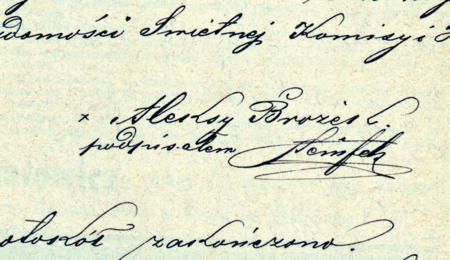 domości Świetnej Komisyi
× Aleksy Brożek.
podpisałem
otokół zakończono.